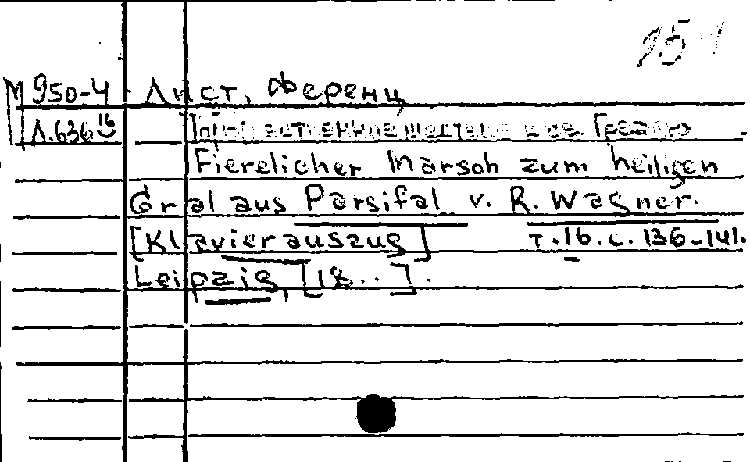 951
М 950-4 Лист, Ференц
Л.636 16 Торжественное шествие к св. Граалю
Fierelicher Marsch zum heiligen
Gral aus Parsifal v. R. Wagner.
[Klavierauszug] т.16. с. 136-141.
Leipzig, [18..].